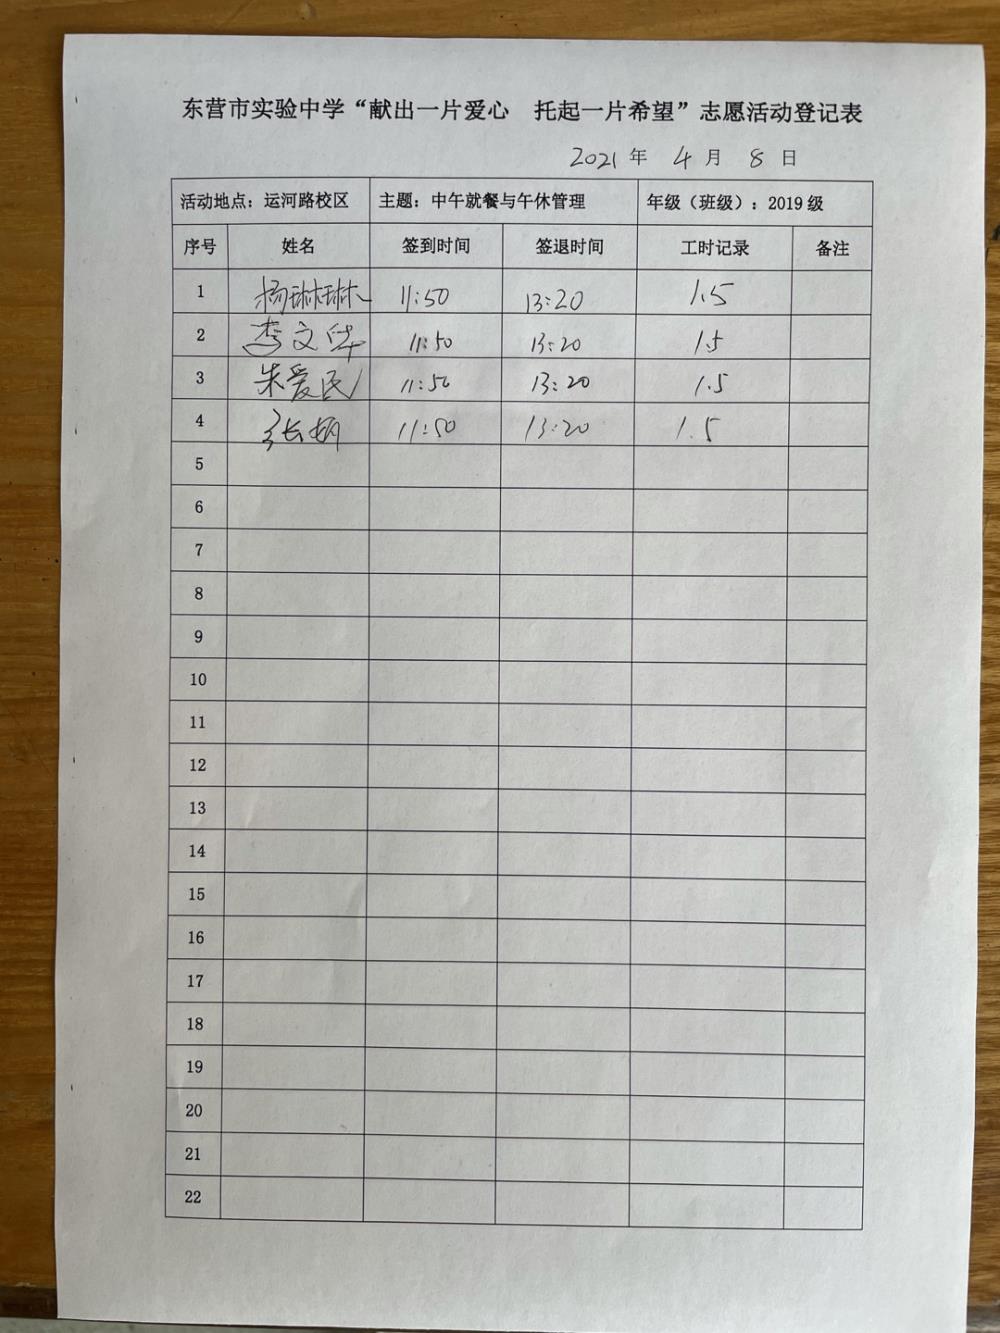 东营市实验中学“献出一片爱心 托起一片希望”志愿活动登记表
2021 年 4 月 8 日
活动地点：运河路校区 主题：中午就餐与午休管理 年级（班级）：2019 级
序号 姓名 签到时间 签退时间 工时记录 备注
1 杨琳琳 11:50 13:20 1.5
2 李文华 11:50 13:20 1.5
3 朱爱民 11:50 13:20 1.5
4 张娟 11:50 13:20 1.5
5
6
7
8
9
10
11
12
13
14
15
16
17
18
19
20
21
22